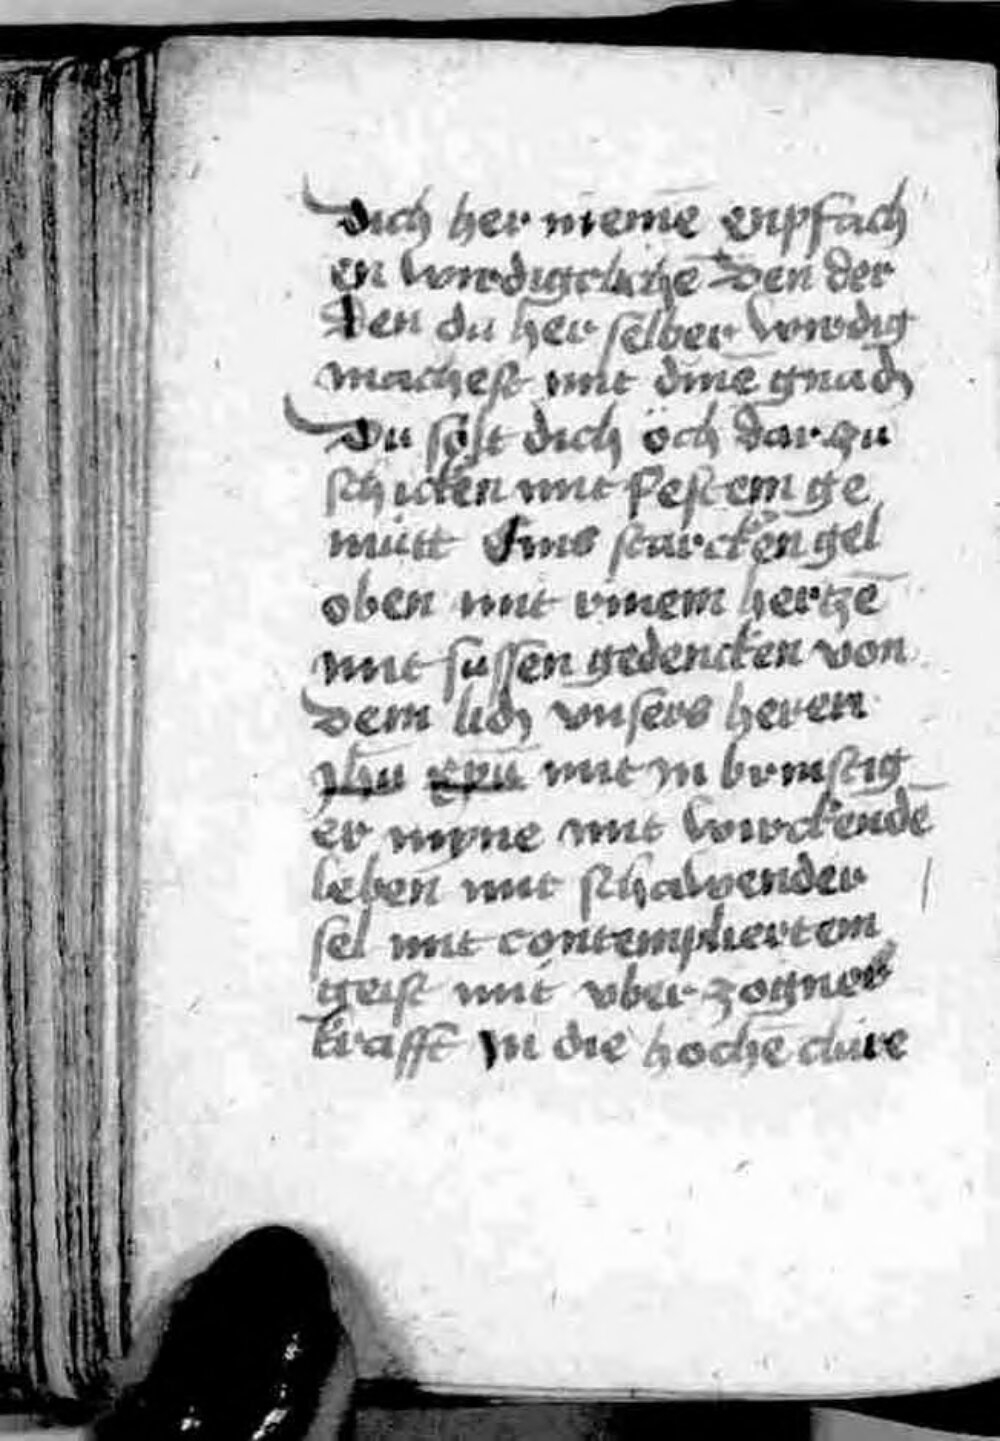 dich her niemē enpfach
en wirdigcliche Den der
Den du her selber wirdig
machest mit dinē gnadē
Du solt dich öch dar zu
schicken mit festem ge
mütt Eins starcken gel
oben mit einem hertzē
mit sussen gedencken von
dem lidē vnsers heren
jhū xpū mit in brinstig
er myne mit wirckendē
leben mit schawender
sel mit contempliertem
geist mit vber zogner
krafft in die hochē